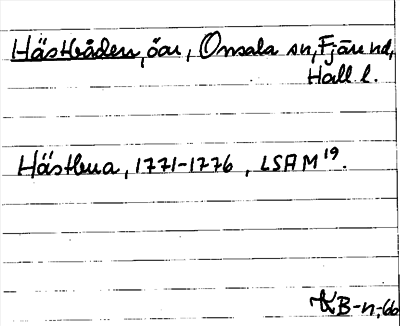 Hästbåden, öar, Onsala sn, Fjäre hd,
Hall l.
Hästbua, 1771-1776, LSA M 19.
KB-n,-66